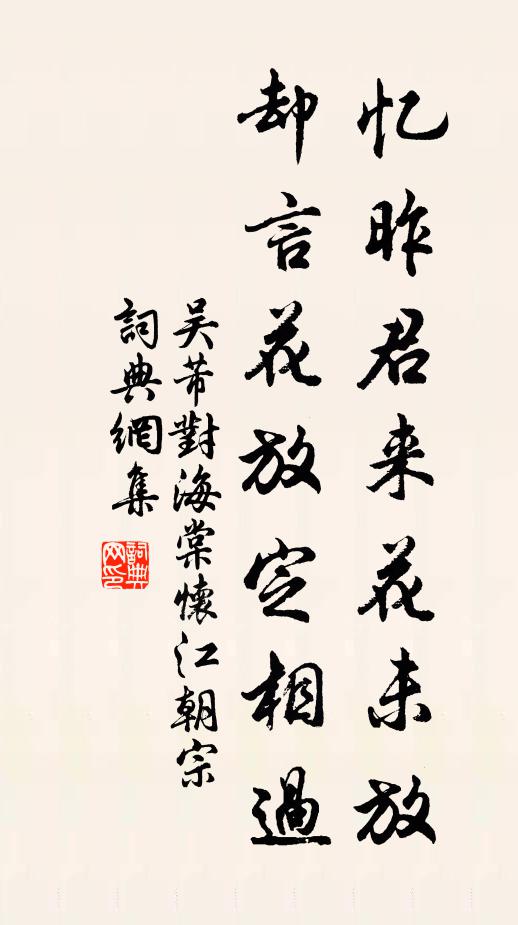 忆昨君来花未放
却言花放定相過
吴芾對海棠懷江朝宗
詞典網集
詞典网印